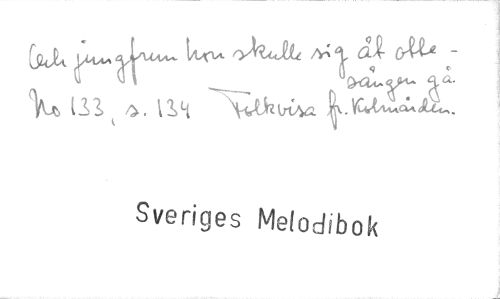 Och jungfrun hon skulle sig åt otte-
sången gå.
No 133, s. 134 Folkvisa fr. Kolmården.
Sveriges Melodibok